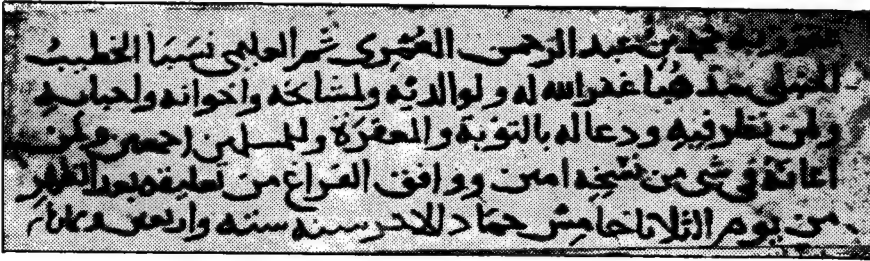 محمد بن عبد الرحمن العمري ثم العليمي نسبا الخطيب
الحنبلي مذهبا غفر الله له ولوالديه ولمشايخه واخوانه واحبابه
ولمن نظر فيه ودعا له بالتوبة والمغفرة وللمسلمين اجمعين ولمن
اعانه في شي من نسخه امين ووافق الفراغ من تعليقه بعد الظهر
من يوم الثلاثا خامس جماد الاخر سنه سته واربعين وثمانمائة